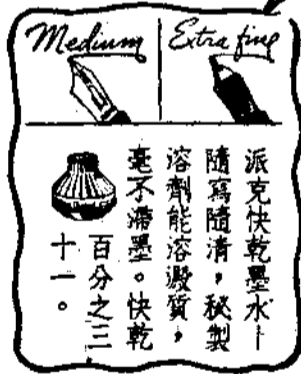 Medium
Extra fine
派克快乾墨水–
隨寫隨清，秘製
溶劑能溶澱質，
毫不滯墨。快乾
百分之三
十一。